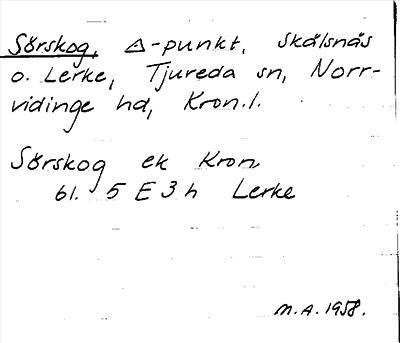 Sörskog, △-punkt, Skälsnäs
o. Lerke, Tjureda sn, Norr-
vidinge hd, Kron.l.
Sörskog ek Kron
61. 5 E 3 h Lerke
M.A. 1958.